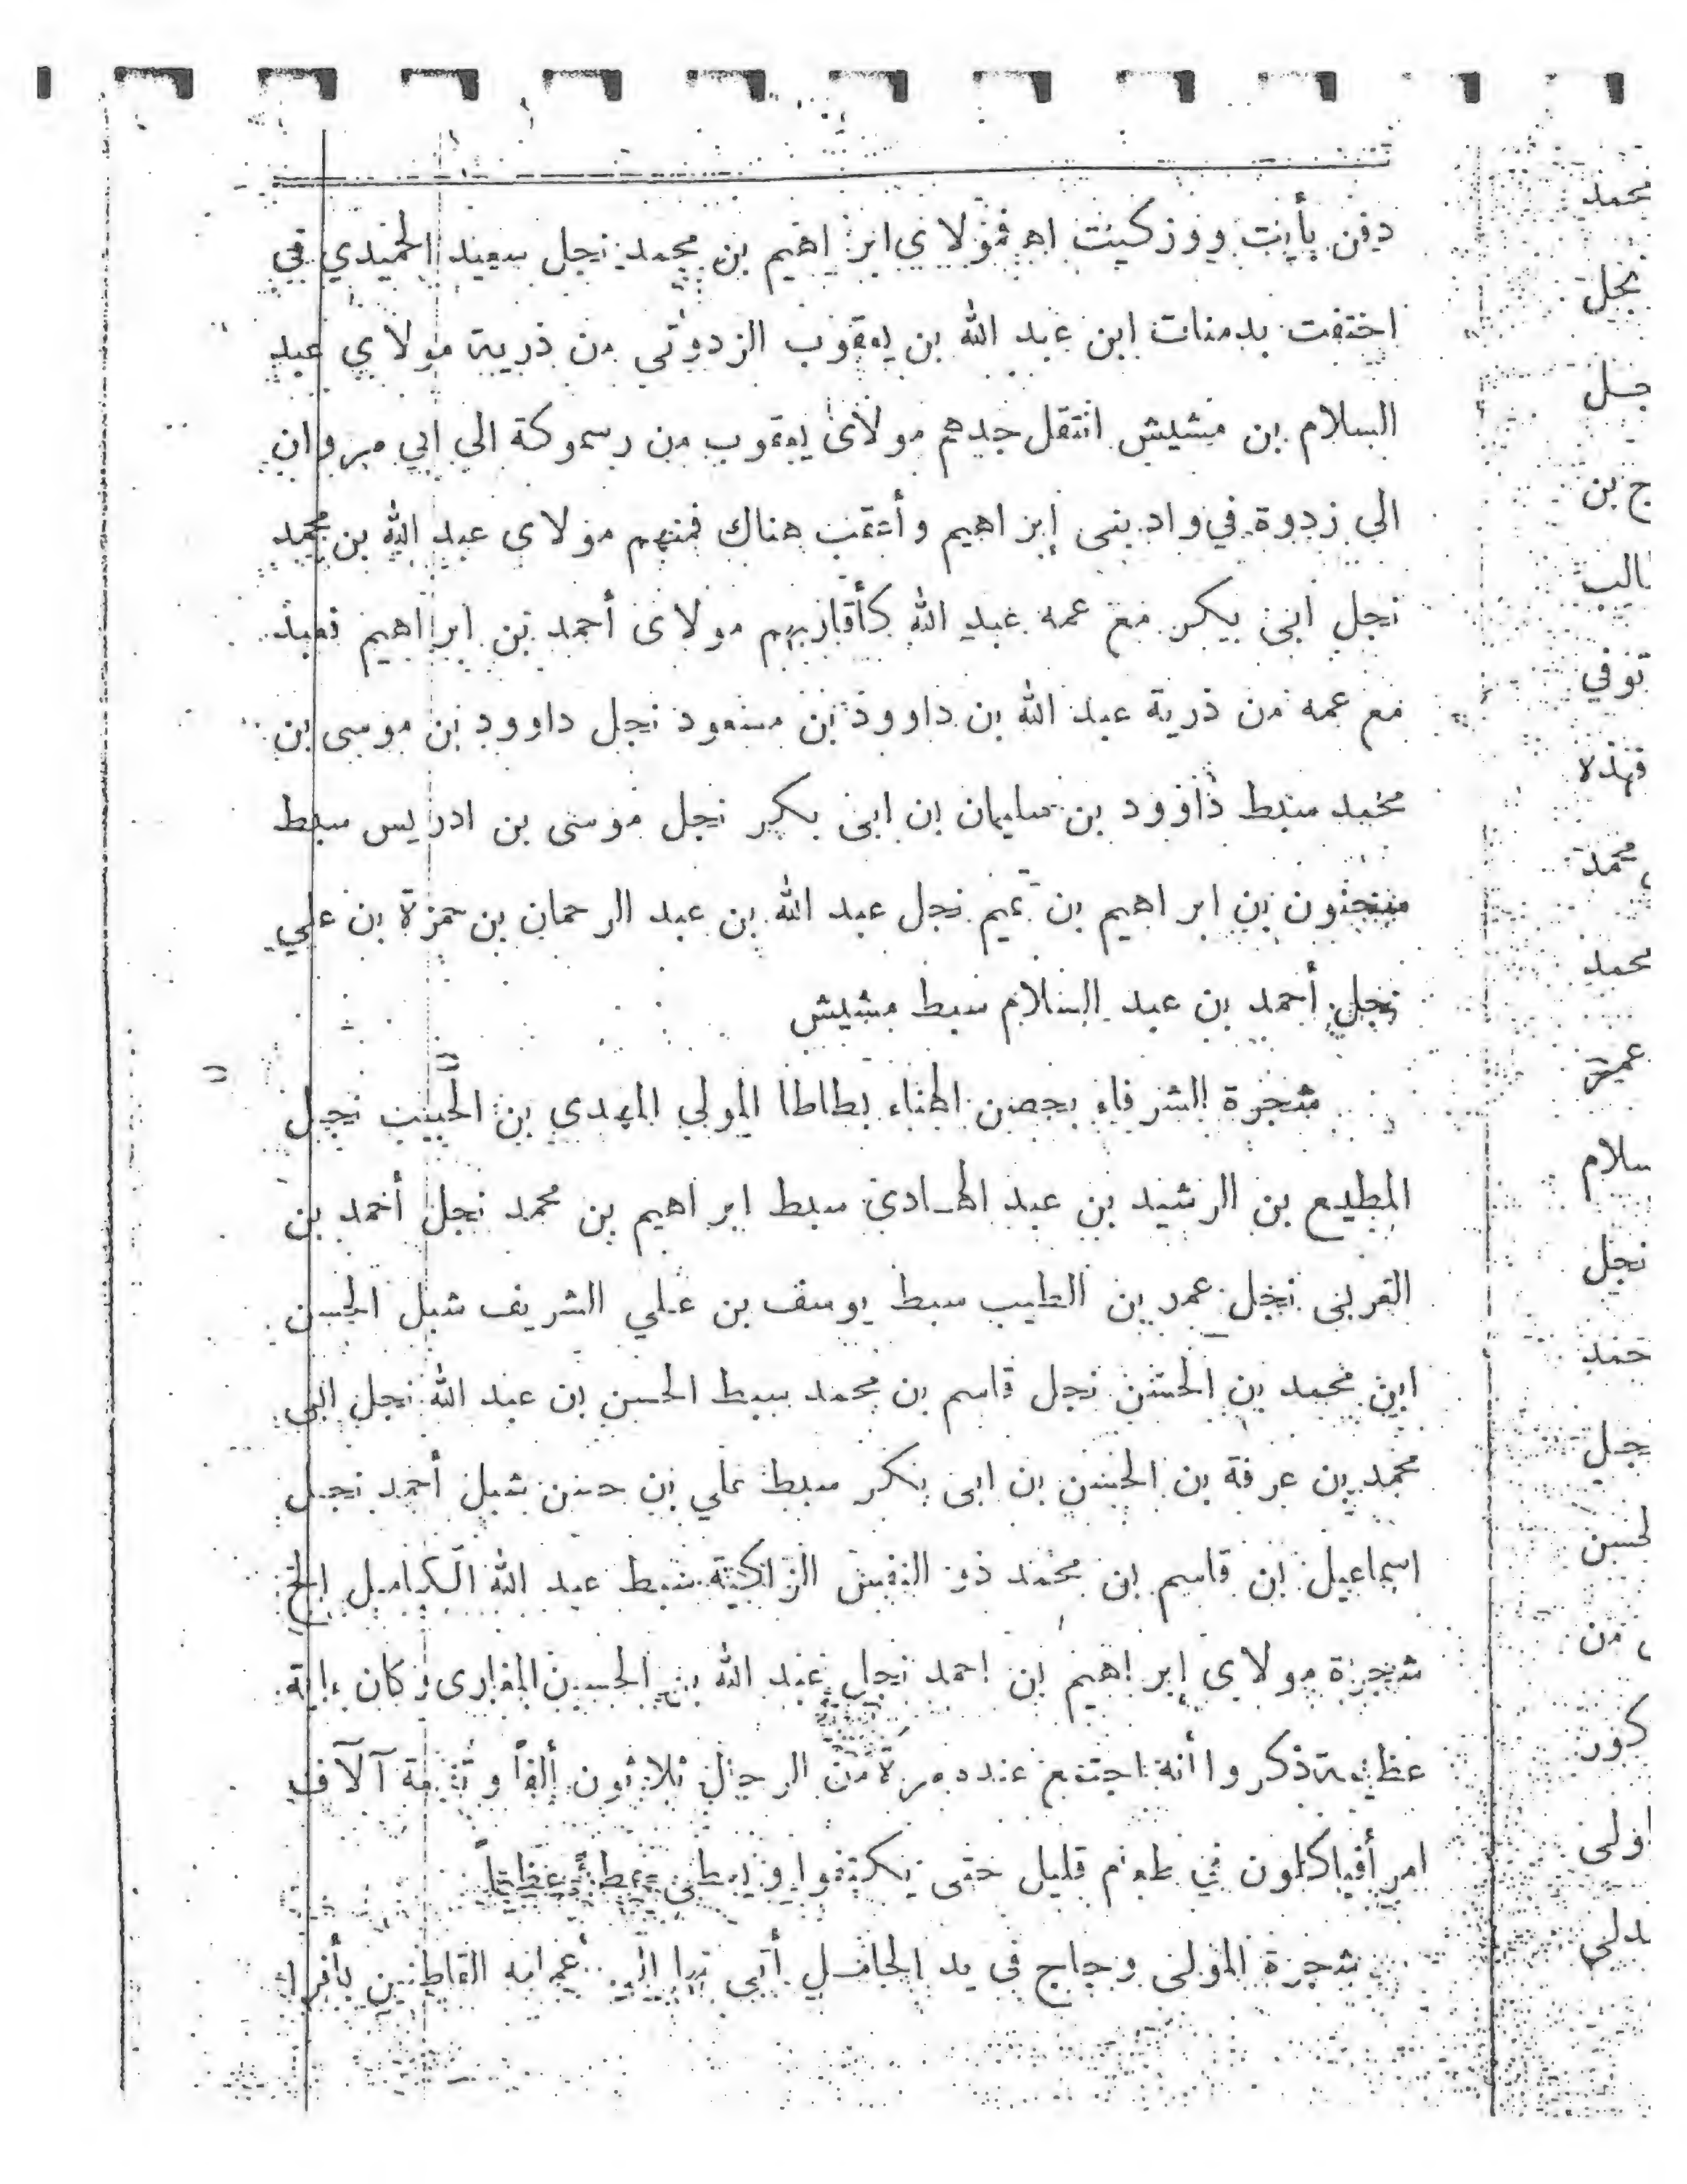 دفن بأيت ووزكيت اه فمولاي ابراهيم بن محمد نجل سعيد الحميدي في
اختفت بدمنات ابن عبد الله بن يعقوب الزدوتي من ذرية مولاي عبد
السلام بن مشيش انتقل جدهم مولاى يعقوب من رسموكة الى ابي مروان
الى زدوة في واد بنى إبراهيم وأعقب هناك فمنهم مولاى عبد الله بن محمد
نجل ابى بيكر مع عمه عبد الله كأقاربهم مولاى أحمد بن ابراهيم نعبد
مع عمه من ذرية عبد الله بن داوود بن مسعود نجل داوود بن موسى بن
محمد سبط داوود بن سليمان بن ابى بكر نجل موسى بن ادريس سبط
سحنون بن ابراهيم بن تميم نجل عبد الله بن عبد الرحمان بن حمزة بن علي
نجل أحمد بن عبد السلام سبط مشيش
شجرة الشرفاء بحصن الهناء بطاطا المولي المهدى بن الحبيب نجل
المطيع بن الرشيد بن عبد الهادى سبط ابراهيم بن محمد نجل أحمد بن
العربى نجل عمر بن الطيب سبط يوسف بن علي الشريف شبل الحسن
ابن محمد بن الحسن نجل قاسم بن محمد سبط الحسن بن عبد الله نجل ابى
محمد بن عرفة بن الحسن بن ابى بكر سبط علي بن حسن شبل أحمد نجل
اسماعيل بن قاسم بن محمد ذو النفس الزاكية سبط عبد الله الكامل الخ
شجرة مولاى إبراهيم بن احمد نجل عبد الله بن الحسين المغارى وكان ءاية
عظيمة ذكروا أنه اجتمع عنده مرة من الرجال ثلاثون ألفاً وتسعة آلاف
امرأة فياكلون في طعام قليل حتى يكتفوا ويعطى عظيماً
شجرة المولى وجاج فى يد الحافل أتى الى أعمامه القاطنين بأفرا
محمد
نجل
جل
ج بن
الب
توفي
فهذه
محمد
محمد
عمر
سلام
نجل
حمد
جل
لحسن
من
كور
اولى